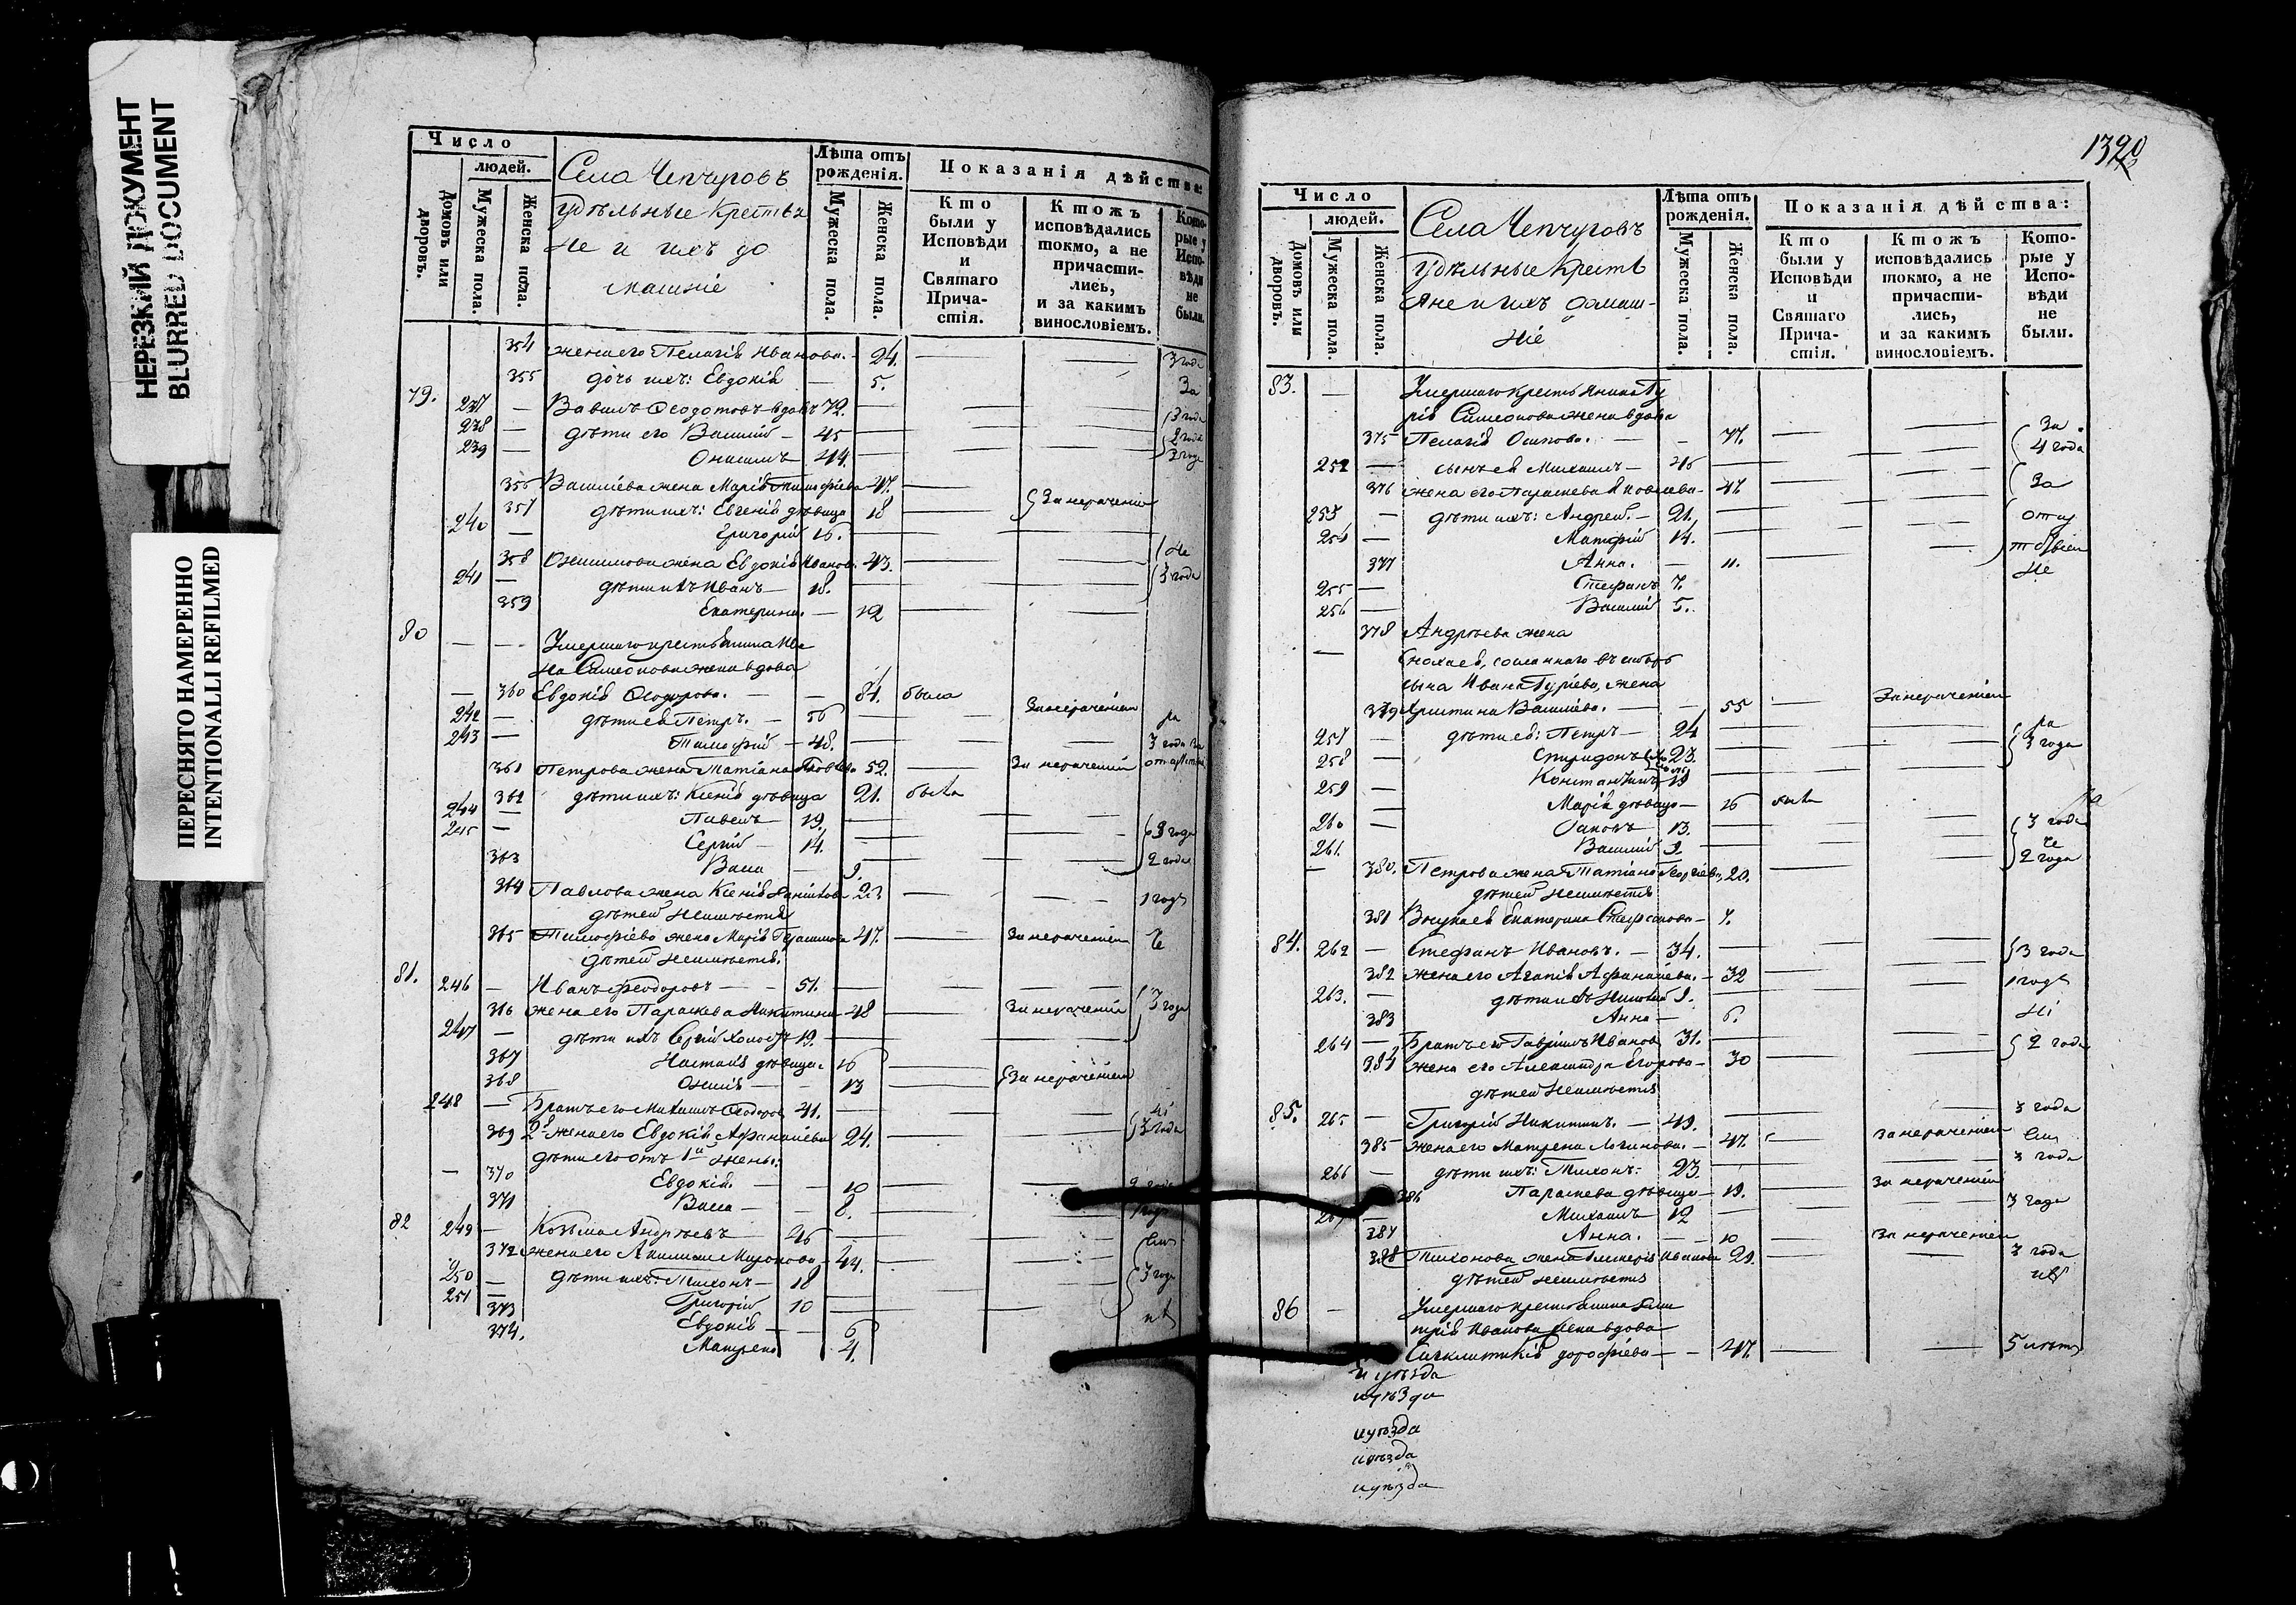 НЕРЕЗКИЙ ДОКУМЕНТ
BLURRED DOCUMENT
ПЕРЕСНЯТО НАМЕРЕННО
INTENTIONALLI REFILMED
Число
людей.
Домовъ или дворовъ.
Мужеска пола.
Женска пола.
Села Чепчуговъ
Удѣльные Крестья
не и ихъ до
машніе
Лѣта отъ рожденія.
Мужеска пола.
Женска пола.
Показанія дѣйства:
Кто были у Исповѣди и Святаго Прича-стія.
Ктожъ исповѣдались токмо, а не причасти-лись, и за какимъ винословіемъ.
Кото-рые у Испо-вѣди не были.
354 жена его Пелагія Иванова. 24. 3 года
355 дочь ихъ: Евдокія 5. За
79. 237 Вавилъ Ѳеодотовъ вдовъ 72. 3 года
238 дѣти его Василій 45 2 года
239 Онисимъ 44. 3 года
Василіева жена Марія Тимофіева 47.
357 дѣти ихъ: Евгенія дѣвица 18 За нерачениемъ
240 Григорій 16.
358 Онисимова жена Евдокія Иванова 43. Не
241 дѣти ихъ Иванъ 18. 3 года
359 Екатерина. 12
80 Умершаго крестьянина Ива
на Симеонова жена вдова
360 Евдокія Ѳеодорова. 81. была
242 дѣти ея Петръ. 56 За нерачениемъ
243 Тимофій 48. 3 года
361 Петрова жена Татіана 52. За нерачениемъ
362 дѣти ихъ: Ксенія дѣвица 21. была
244 Павелъ 19. 3 года
245 Сергій 14. 2 года
363 Васса 9.
364 Павлова жена Ксенія 23 1 годъ
дѣтей неимѣется
365 Тимофіева жена Марія Герасимова 47. За нерачениемъ
дѣтей неимѣется.
81. 246 Иванъ Ѳеодоровъ 51.
366 жена его Параскева Никитина 48 За нерачениемъ 3 года
247 дѣти ихъ Сергій холостъ 19.
367 Настасія дѣвица. 16
368 13 За нерачениемъ
248 Братъ его Михаилъ Ѳеодоровъ 41.
369 2я жена его Евдокія Афанасіева 24. 3 года
дѣти его отъ 1й жены:
370 Евдокія. 10
371 Васса 8.
82 249 Козьма Андреевъ 46
372 жена его Акилина Миронова 44.
250 дѣти ихъ: Тихонъ 18 3 года
251 Григорій 10
373 Евдокія 6
374. Матрена 4.
1320
Число
людей.
Домовъ или дворовъ.
Мужеска пола.
Женска пола.
Села Чепчуговъ
Удѣльные Кресть
яне и ихъ домаш-
ніе
Лѣта отъ рожденія.
Мужеска пола.
Женска пола.
Показанія дѣйства:
Кто были у Исповѣди и Святаго Прича-стія.
Ктожъ исповѣдались токмо, а не причасти-лись, и за какимъ винословіемъ.
Кото-рые у Испо-вѣди не были.
83. Умершаго крестьянина Гу
рія Симеонова жена вдова
375 Пелагія Осипова. 77. За
252 сынъ ея Михаилъ 46 4 года
376 жена его Параскева Яковлева 47. За
253 дѣти ихъ: Андрей. 21.
254 Матфій 14.
377 Анна. 11. Не
255 Стефанъ 7.
256 Василій 5.
378 Андреева жена
Сноха ея, сосланнаго въ сибирь
сына Ивана Гуріева, жена
379 Христина Василіева. 55 За нерачениемъ
257 дѣти ея: Петръ 24
258 Спиридонъ 23. 3 года
259 Константинъ 19
Марія дѣвица 16 была
260 Яковъ 13. 3 года
261. Василій 9. 2 года
380. Петрова жена Татіана Георгіева, 20.
дѣтей неимѣется
381 Внука ея Екатерина Стефанова 7.
84. 262 Стефанъ Ивановъ. 34. 3 года
382 жена его Агапія Афанасіева. 32 1 годъ
263. дѣти ихъ Николай 9.
383 Анна 6.
264 Братъ его Гавріилъ Ивановъ 31. 2 года
384 жена его Александра Егорова 30
дѣтей неимѣется
85. 265 Григорій Никитинъ. 49. 3 года
385 жена его Матрена Логинова. 47. за нерачениемъ
266 дѣти ихъ: Тихонъ. 23. 3 года
386 Параскева дѣвица 19. за нерачениемъ
267 Михаилъ 12 3 года
387 Анна. 10 за нерачениемъ
388 Тихонова жена Гликерія Иванова 21. 3 года
дѣтей неимѣется
86 Умершаго крестьянина Дми
трія Иванова жена вдова
Сигклитикія дорофіева 47. 5 лѣтъ
и уѣзда
и уѣзда
и уѣзда
и уѣзда
и уѣзда